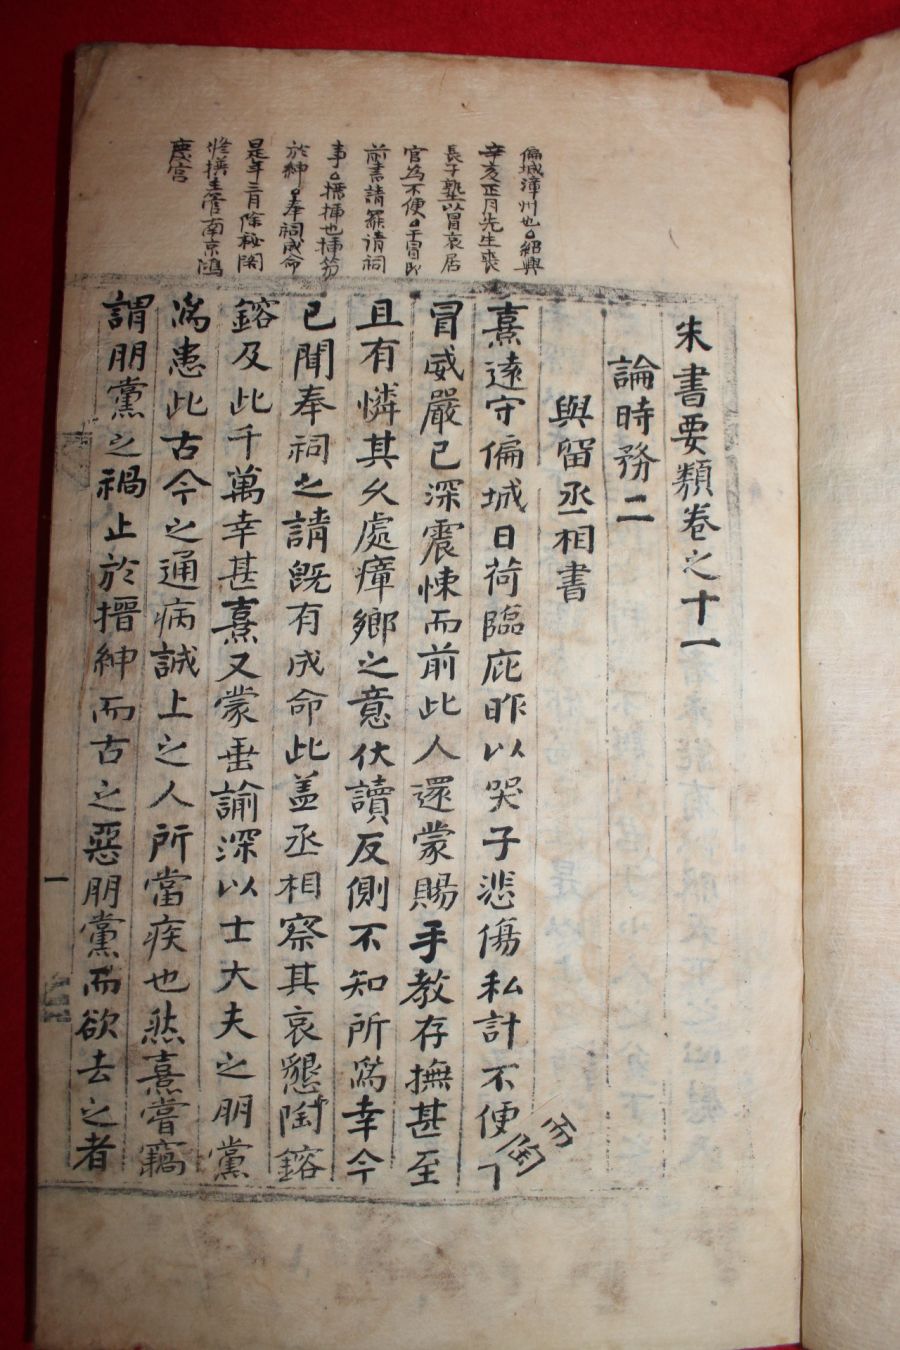 朱書要類卷之十一
論時務二
與留丞相書
熹遠守偏城日荷臨庇昨以哭子悲傷私計不便下
冒威嚴已深震悚而前此人還蒙賜手教存撫甚至
且有憐其久處瘴鄉之意伏讀反側不知所爲幸今
已聞奉祠之請旣有成命此盖丞相察其哀懇陶鎔
鎔及此千萬幸甚熹又蒙垂諭深以士大夫之朋黨
爲患此古今之通病誠上之人所當疾也然熹嘗竊
謂朋黨之禍止於搢紳而古之惡朋黨而欲去之者
偏城漳州也紹興
辛亥正月先生喪
長子塾以冒哀居
官爲不便干冒卽
前書請罷請祠
事搢揷也揷笏
於紳奉祠成命
是年三月除秘閣
修撰主管南京鴻
慶宮
而陶
一